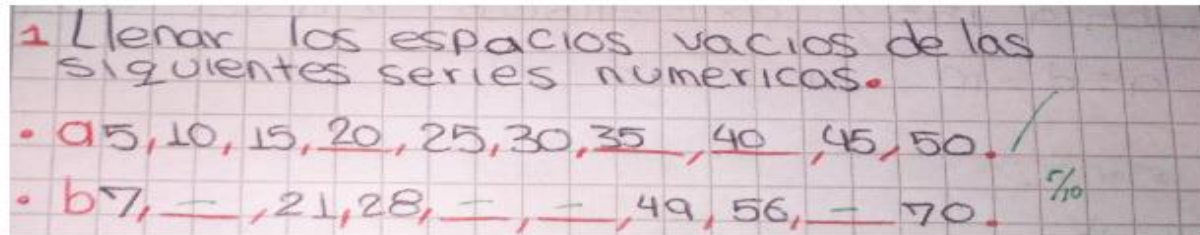 1 Llenar los espacios vacios de las
siguientes series numericas.
• a 5, 10, 15, 20, 25, 30, 35, 40, 45, 50. /
• b 7, _, 21, 28, _, _, 49, 56, _ 70.
5/10